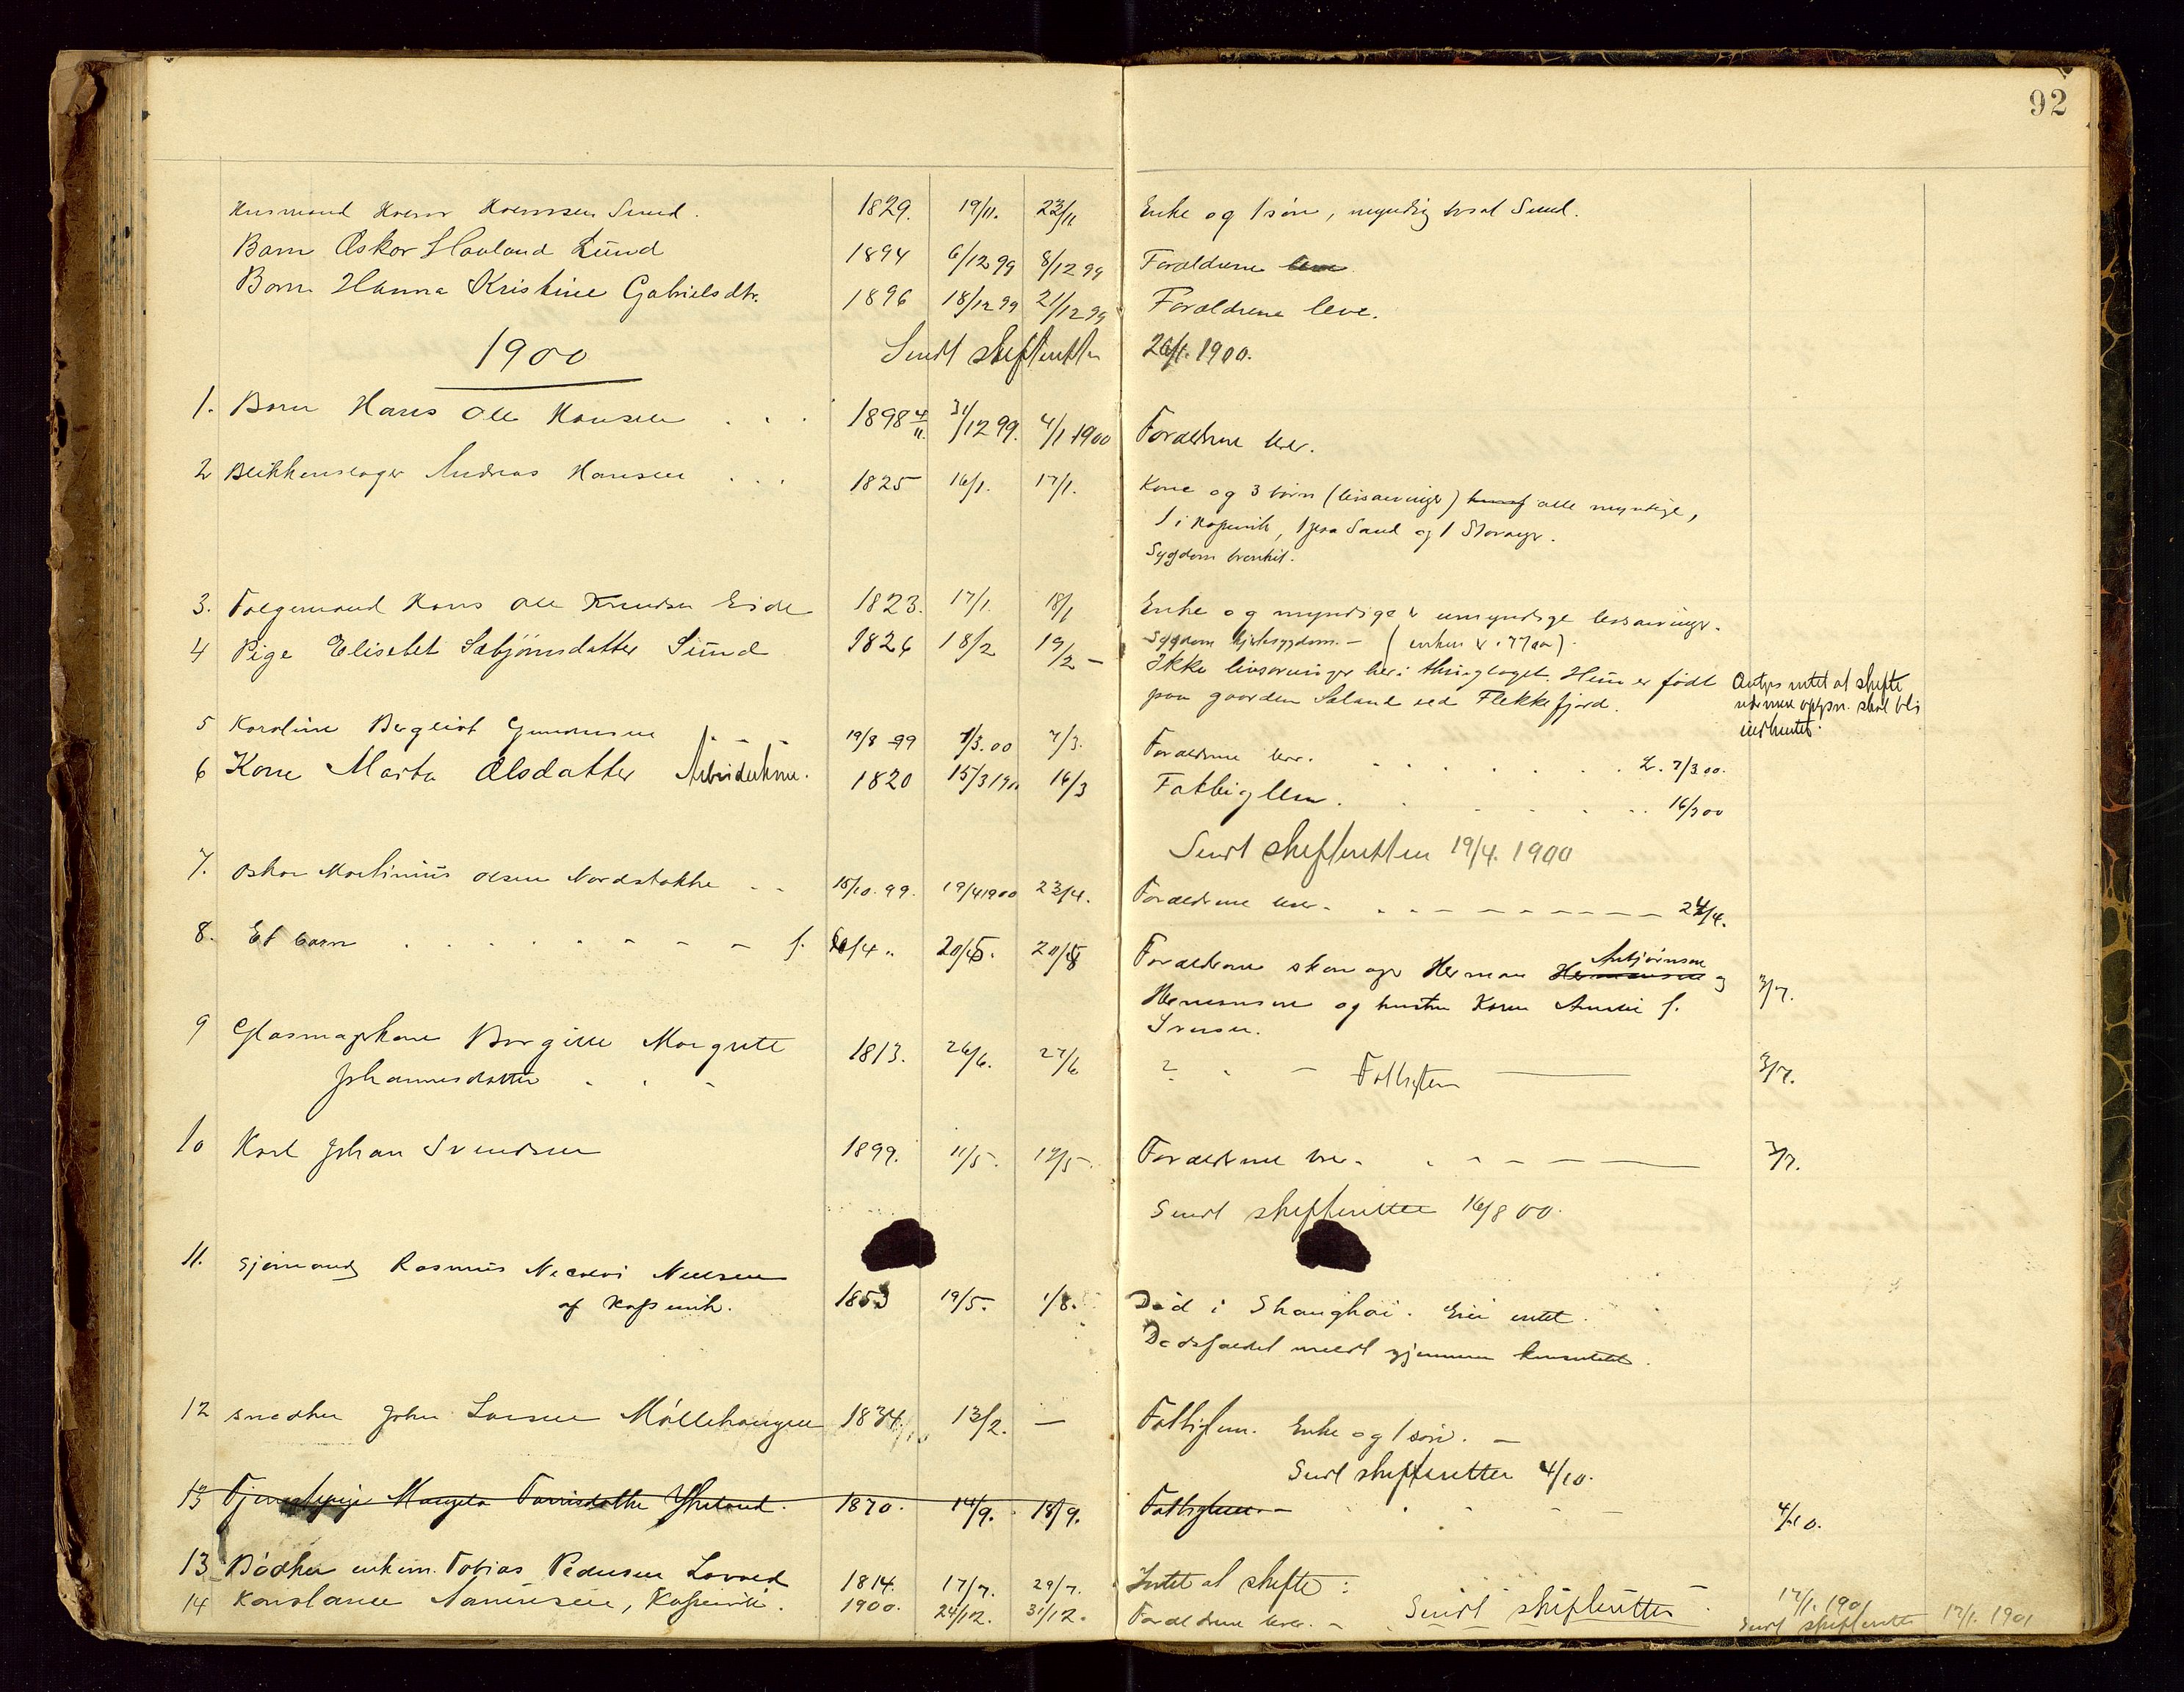 92
Husmand Sund. 1829. 19/11. 23/11 Enke og 1 søn, myndig Sund.
Barn Oskar Havland Lund 1894 6/12 99 8/12 99 Forældrene leve
Barn Hanna Kristine Gabrielsdtr. 1896 18/12 99 21/12 99 Forældrene leve.
1900 Sendt skifteretten 26/1. 1900.
1. Barn Hans Olai Hansen . . . 1898 4/11. 31/12 99. 4/1 1900 Forældrene lever.
2 Blikkenslager Andreas Hansen . . . 1825 16/1. 17/1. Kone og 3 børn (livsarvinger) alle myndige,
1 i Kopervik, 1 paa Sand og 1 Stavanger.
Sygdom bronkit.
3. Følgemand Hans Olai Knudsen Eide 1823. 17/1. 18/1 Enke og myndige & umyndige livsarvinger.
Sygdom hjertesygdom. – (enken er 77 aar).
4 Pige Elisebet Sæbjørnsdatter Sund 1826 18/2 19/2 – Ikke livsarvinger her i thinglaget. Hun er født
paa gaarden Saland ved Flekkefjord.
Antages intet at skifte
nærmere oplysn. skal bli
indhentet.
5 Karoline Bergliot Gundersen 19/8 99 7/3. 00 7/3. Forældrene lever. . . . . . . . 2. 7/3 00.
6 Kone Marta Olsdatter Arbeiderkone. 1820 15/3 1900 16/3 Fattiglem. . . . . . . 16/3 00
Sendt skifteretten 19/4. 1900
7. Oskar Martinius Olsen Nordstokke . . 15/10. 99. 19/4 1900 23/4. Forældrene lever. 24/4.
8. Et barn . . . . . . f. 20/4 .. 20/5. 20/5 Forældrene skomager Herman Hermansen Asbjørnsen og
Hermansen og hustru Karen Amalie f.
Iversen.
3/7.
9 Glasmagerkone Borgille Margrete 1813. 26/6. 27/6 ? – Fattiglem 3/7.
Johannesdatter . . .
10 Karl Johan Svendsen 1899. 11/5. 12/5. Forældrene lever. 3/7.
Sendt skifteretten 16/8 00.
11. Sjømand Rasmus Nicolai Nielsen
af Kopervik. 1853 19/5. 1/8. Død i Shanghai. Eier intet.
Dødsfaldet meldt gjennem konsulatet.
12 Snedker John Larsen Møllehaugen 1834. 13/2. – Fattiglem. Enke og 1 søn. –
Sendt skifteretten 4/10.
13 Tjenestepige 1870. 14/9. 18/9. Fattiglem. – 4/10.
13 Bødker enkem. Tobias Pedersen 1814. 17/7. 29/7. Intet at skifte:
14 Konstance , Kopervik. 1900. 24/12. 31/12. Forældrene lever. – Sendt skifteretten 17/1. 1901
Sendt skifteretten 17/1. 1901